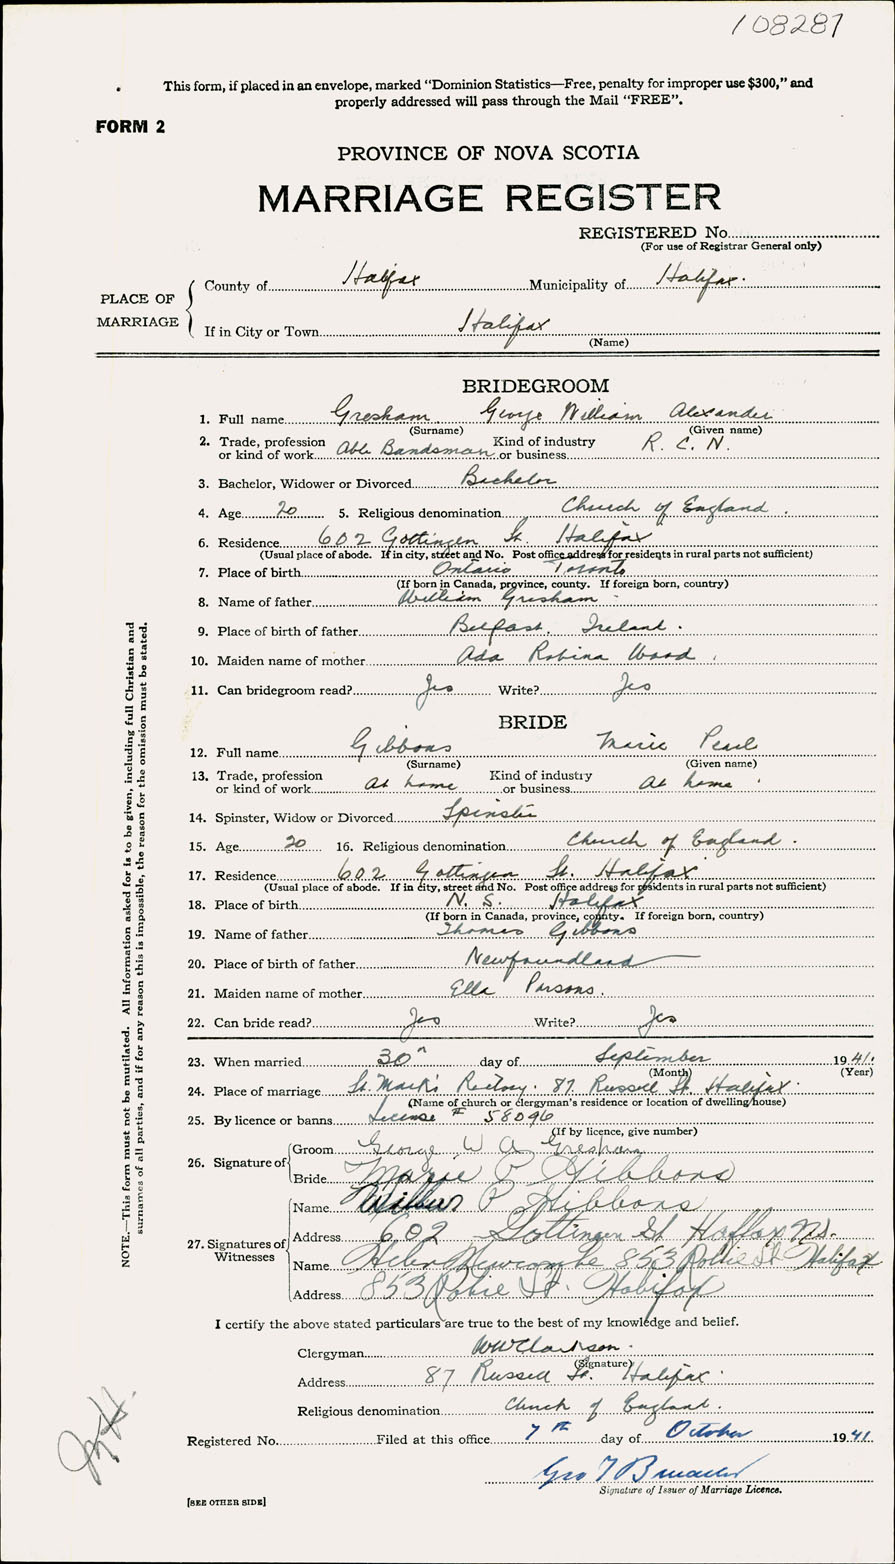 108287
This form, if placed in an envelope, marked "Dominion Statistics—Free, penalty for improper use $300," and
properly addressed will pass through the Mail "FREE".
FORM 2
PROVINCE OF NOVA SCOTIA
MARRIAGE REGISTER
REGISTERED No.
(For use of Registrar General only)
PLACE OF MARRIAGE
County of Halifax Municipality of Halifax.
If in City or Town Halifax
(Name)
BRIDEGROOM
1. Full name Gresham George William Alexander
(Surname) (Given name)
2. Trade, profession or kind of work Able Bandsman Kind of industry or business R. C. N.
3. Bachelor, Widower or Divorced Bachelor
4. Age 20 5. Religious denomination Church of England.
6. Residence 602 Gottingen St. Halifax
(Usual place of abode. If in city, street and No. Post office address for residents in rural parts not sufficient)
7. Place of birth Ontario Toronto
(If born in Canada, province, county. If foreign born, country)
8. Name of father William Gresham
9. Place of birth of father Belfast. Ireland.
10. Maiden name of mother Ada Robina Wood
11. Can bridegroom read? Yes Write? Yes
BRIDE
12. Full name Gibbons Marie Pearl
(Surname) (Given name)
13. Trade, profession or kind of work At home Kind of industry or business At home
14. Spinster, Widow or Divorced Spinster
15. Age 20 16. Religious denomination Church of England.
17. Residence 602 Gottingen St. Halifax
(Usual place of abode. If in city, street and No. Post office address for residents in rural parts not sufficient)
18. Place of birth N. S. Halifax
(If born in Canada, province, county. If foreign born, country)
19. Name of father Thomas Gibbons
20. Place of birth of father Newfoundland
21. Maiden name of mother Ella Parsons.
22. Can bride read? Yes Write? Yes
23. When married 30th day of September 1941.
(Month) (Year)
24. Place of marriage St. Mark's Rectory. 87 Russell St. Halifax.
(Name of church or clergyman's residence or location of dwelling house)
25. By licence or banns License # 58096
(If by licence, give number)
26. Signature of Groom George W A Gresham
Bride Marie P Gibbons
27. Signatures of Witnesses
Name Wilbur P Gibbons
Address 602 Gottingen St Halifax N.S.
Name Helen Newcombe 853 Robie St Halifax
Address 853 Robie St. Halifax
I certify the above stated particulars are true to the best of my knowledge and belief.
Clergyman WW Clarkson.
(Signature)
Address 87 Russell St. Halifax.
Religious denomination Church of England.
Registered No. Filed at this office 7th day of October 1941
Geo T
Signature of Issuer of Marriage Licence.
[SEE OTHER SIDE]
NOTE.—This form must not be mutilated. All information asked for is to be given, including full Christian and
surnames of all parties, and if for any reason this is impossible, the reason for the omission must be stated.